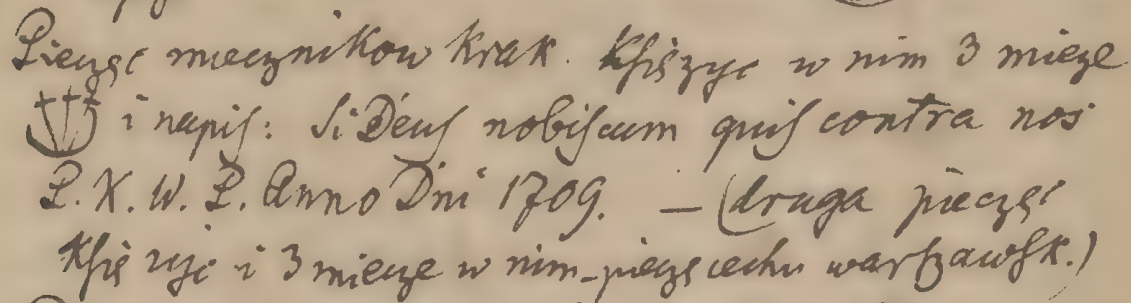 Pieczęć miecznikow krak. Kſiężyc w nim 3 miecze
i napiſ: Si Deuſ nobiſcum quiſ contra nos
P. K. W. P. Anno Dni 1709. — (druga pieczęć
Kſiężyc i 3 miecze w nim - pieczę cechu warſzawſk.)